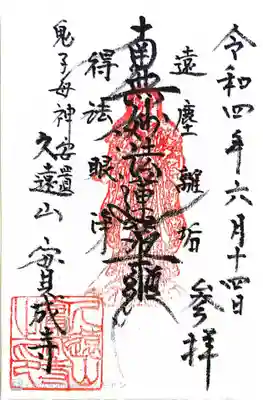 令和四年六月十四日
参拝
遠塵離垢
南無妙法蓮華経
得法眼浄
鬼子母神安置
久遠山
成寺